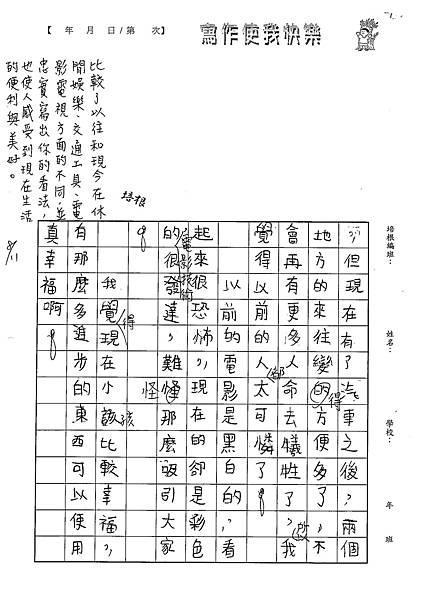 【 年 月 日/第 次】
寫作使我快樂
培根編班：
姓名：
學校：
年 班
，但現在有了汽車之後，兩個
地方的來往變的方便多了，不
得
會再有更多人命去犧牲了，我
覺得以前的人太可憐了。
都
以前的電影是黑白的，看
起來很恐怖，現在的卻是彩色
的很發達，難怪那麼吸引大家
電影技術
怪
。
我覺現在小該比較幸福，
得
孩
有那麼多進步的東西可以使用
真幸福啊。
培根
比較了以往和現今在休
閒娛樂、交通工具、電
影電視方面的不同，並
忠實寫出你的看法，
也使人感受到現在生活
的便利與美好。
8/11